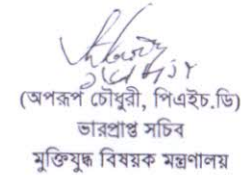 (অপরূপ চৌধুরী, পিএইচ.ডি)
ভারপ্রাপ্ত সচিব
মুক্তিযুদ্ধ বিষয়ক মন্ত্রণালয়